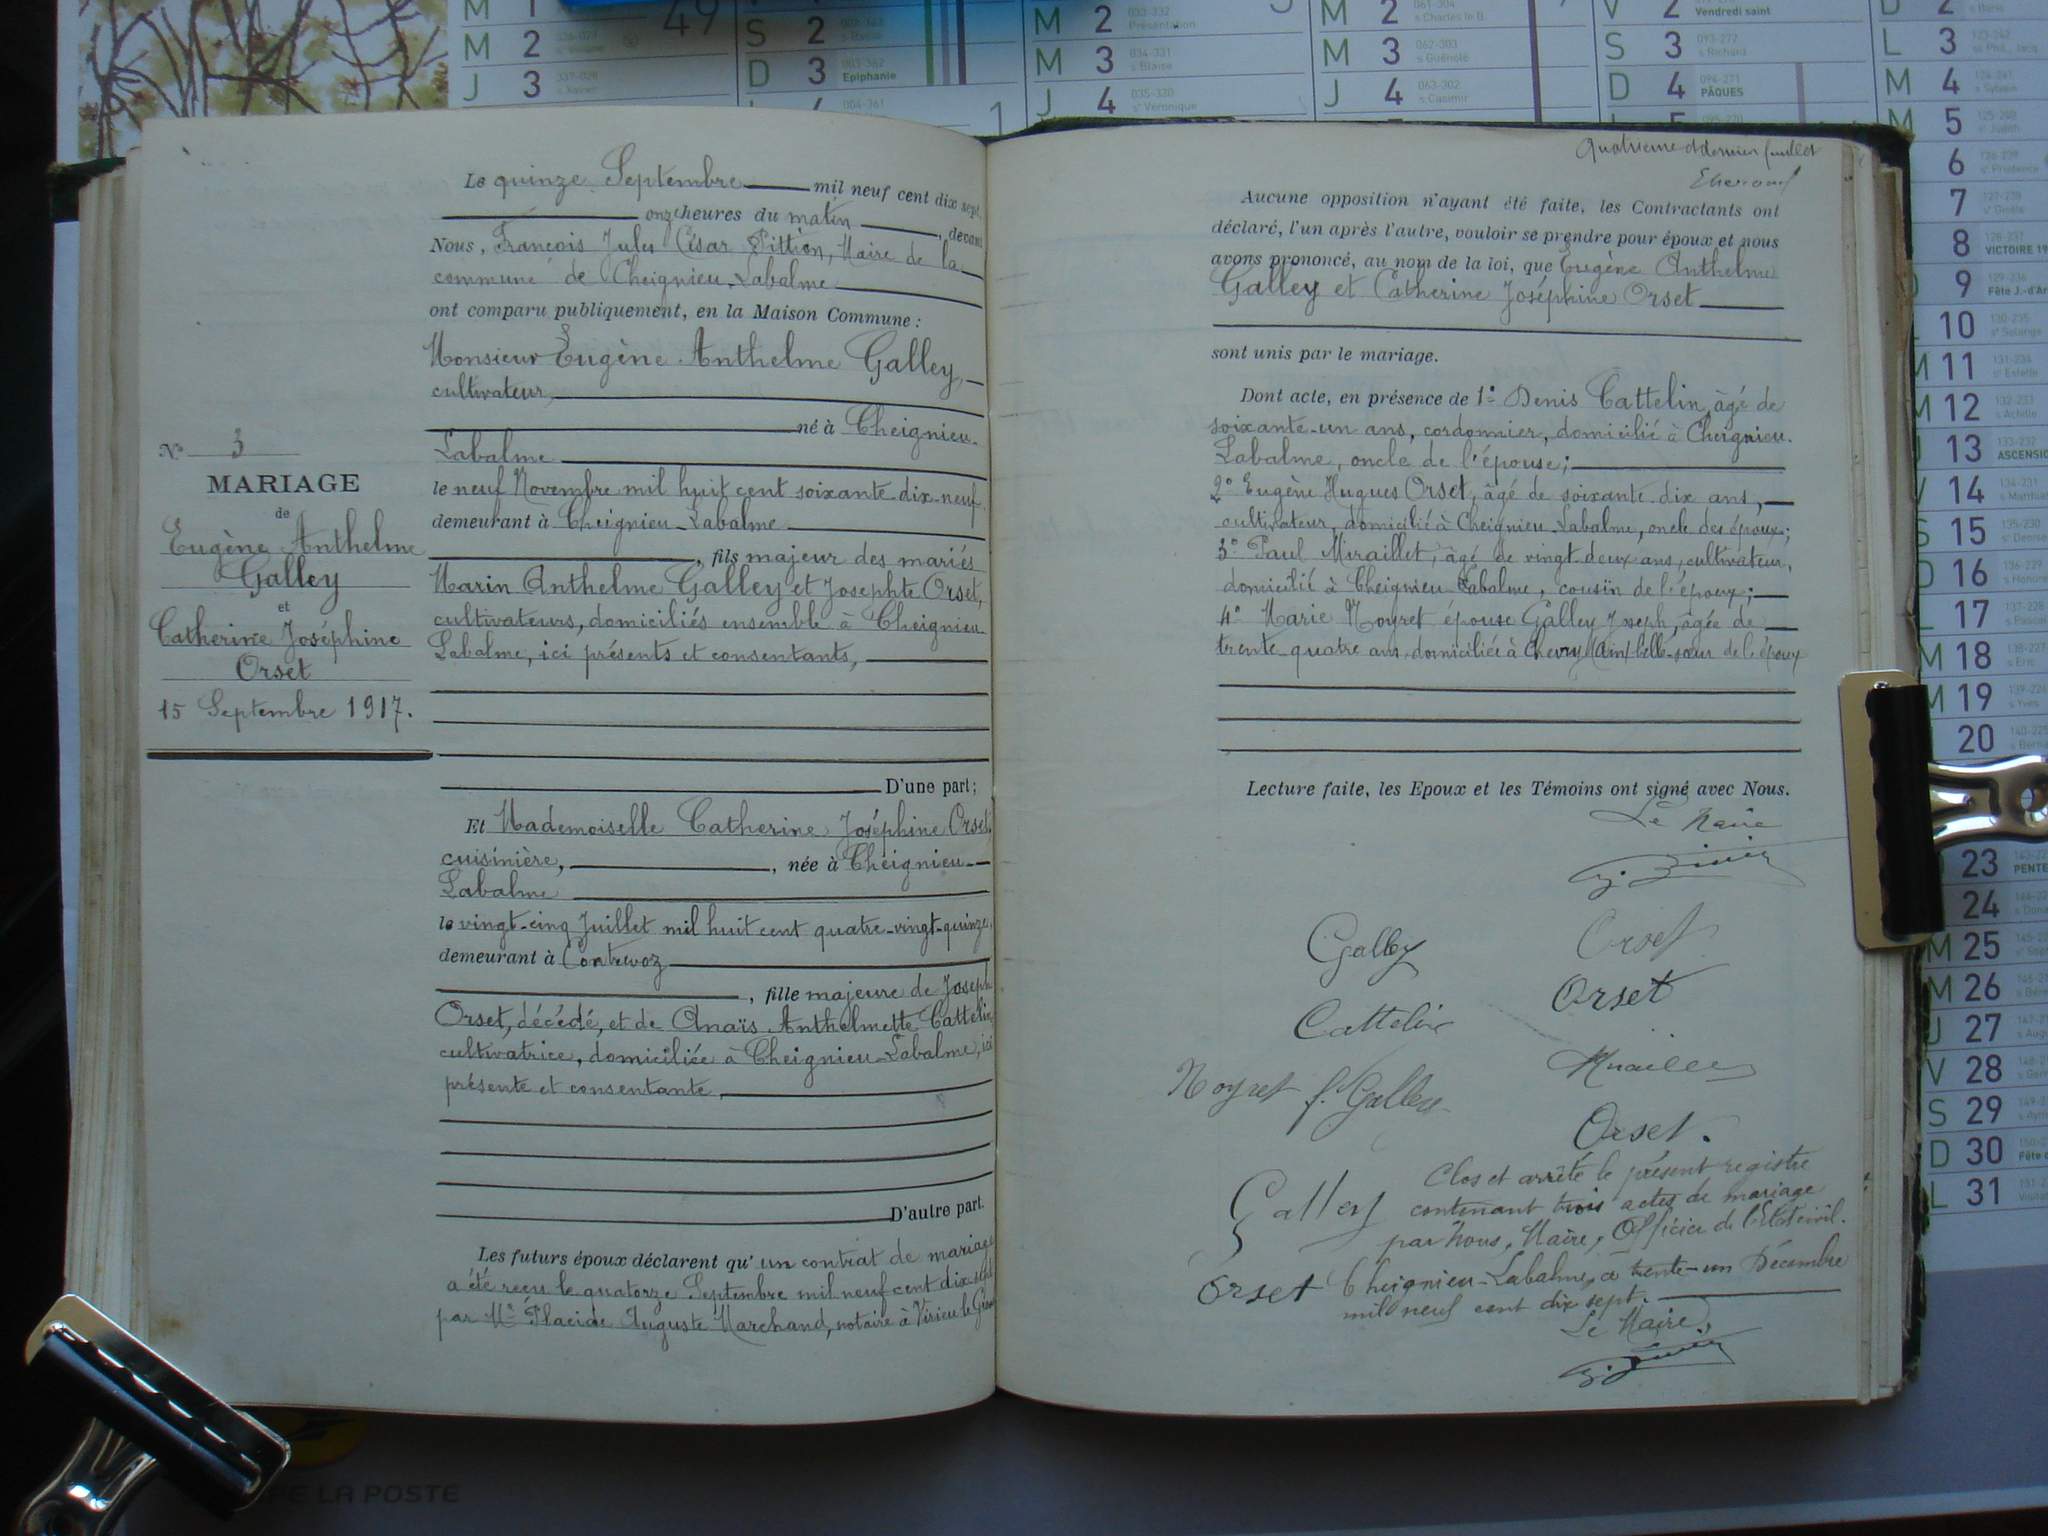 Le quinze Septembre mil neuf cent dix sept,
onze heures du matin, devant
Nous, François Jules César Pittion, Maire de la
commune de Cheignieu-Labalme
ont comparu publiquement, en la Maison Commune :
Monsieur Eugène Anthelme Galley,
cultivateur
né à Cheignieu-
Labalme
le neuf Novembre mil huit cent soixante-dix-neuf
demeurant à Cheignieu-Labalme
, fils majeur des mariés
Marin Anthelme Galley et Josephte Orset,
cultivateurs, domiciliés ensemble à Cheignieu-
Labalme, ici présents et consentants,
D'une part;
Et Mademoiselle Catherine Joséphine Orset,
cuisinière, née à Cheignieu-
Labalme
le vingt-cinq Juillet mil huit cent quatre-vingt-quinze,
demeurant à Contrevoz
, fille majeure de Joseph
Orset, décédé, et de Anaïs Anthelmette Cattelin,
cultivatrice, domiciliée à Cheignieu-Labalme, ici
présente et consentante
D'autre part.
Les futurs époux déclarent qu'un contrat de mariage
a été reçu le quatorze Septembre mil neuf cent dix-sept
par Me Placide Auguste Marchand, notaire à Virieu le Grand
No 3
MARIAGE
de
Eugène Anthelme
Galley
et
Catherine Joséphine
Orset
15 Septembre 1917.
Quatrième et dernier feuillet
Aucune opposition n'ayant été faite, les Contractants ont
déclaré, l'un après l'autre, vouloir se prendre pour époux et nous
avons prononcé, au nom de la loi, que Eugène Anthelme
Galley et Catherine Joséphine Orset
sont unis par le mariage.
Dont acte, en présence de 1° Denis Cattelin, âgé de
soixante-un ans, cordonnier, domicilié à Cheignieu-
Labalme, oncle de l'épouse;
2° Eugène Hugues Orset, âgé de soixante-dix ans,
cultivateur, domicilié à Cheignieu-Labalme, oncle des époux;
3° Paul Miraillet, âgé de vingt-deux ans, cultivateur,
domicilié à Cheignieu-Labalme, cousin de l'époux;
4° Marie Noyret épouse Galley Joseph, âgée de
trente-quatre ans, domiciliée à Chevry (Ain) belle-sœur de l'époux
Lecture faite, les Epoux et les Témoins ont signé avec Nous.
Le Maire
Galley
Orset
Orset
Cattelin
Noyret f. Galley
Orset.
Galley
Orset
Clos et arrêté le présent registre
contenant trois actes de mariage
par Nous, Maire, Officier de l'Etat civil.
Cheignieu-Labalme, à trente-un Décembre
mil neuf cent dix sept.
Le Maire,
LA POSTE
M 1
M 2
J 3
49
S 2
D 3 Epiphanie
M 2
Présentation
M 3
s Blaise
J 4
se Véronique
M 2
s Charles le B.
M 3
s Guénolé
J 4
s Casimir
V 2 Vendredi saint
S 3
s Richard
D 4 PÂQUES
L 3
M 4
M 5
J 6
7
8 VICTOIRE 19
9 Fête J.-d'Ar
L 10
M 11
M 12
J 13 ASCENSIO
V 14
S 15
D 16
L 17
M 18
M 19
20
23 PENTE
24
M 25
M 26
J 27
V 28
S 29
D 30
L 31